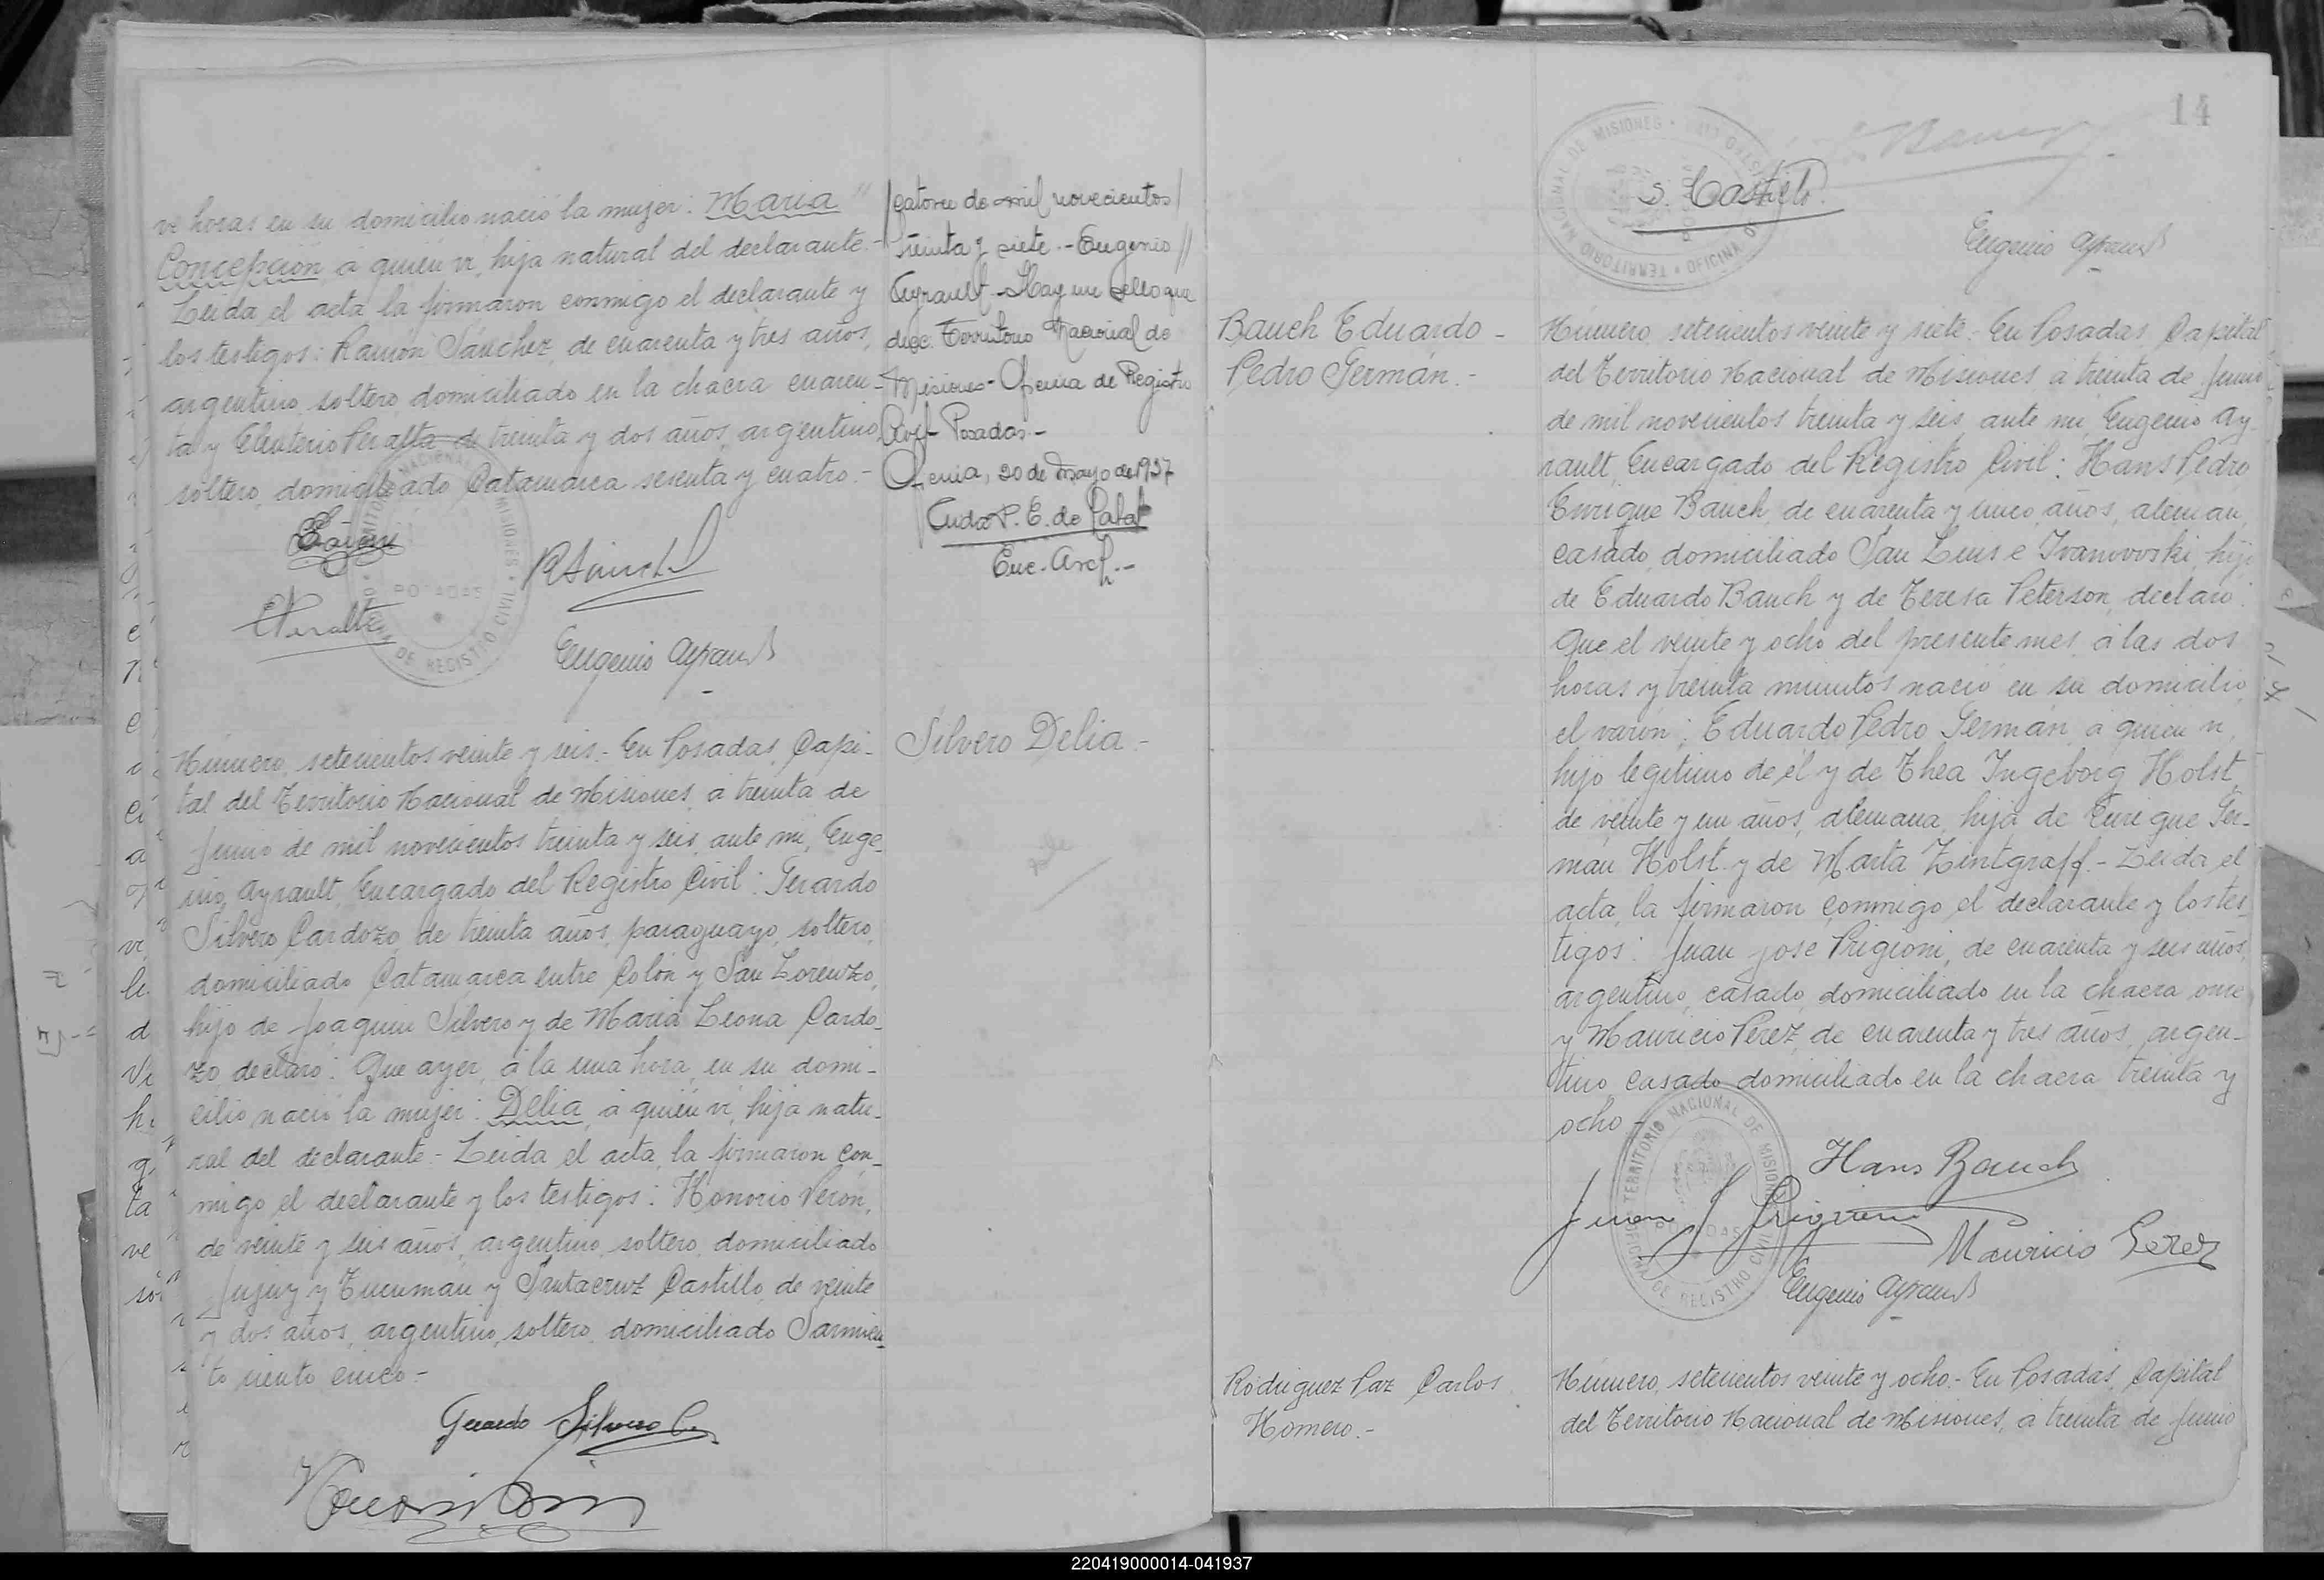 ve horas en su domicilio nació la mujer: Maria
Concepción á quién vi, hija natural del declarante.-
Leida el acta la firmaron conmigo el declarante y
los testigos: Ramón Sánchez, de cuarenta y tres años,
argentino, soltero domiciliado en la chacra cuaren-
ta y Eleuterio Peralta de treinta y dos años, argentino,
soltero, domiciliado Catamarca sesenta y cuatro.-
E Peralta
Eugenio Ayrault
catorce de mil novecientos
treinta y siete.-Eugenio
Ayrault-Hay un sello que
dice: Territorio Nacional de
Misiones-Oficina de Registro
Civil-Posadas-
Oficina, 20 de Mayo de 1937
Enc. Arch.-
Número, setecientos veinte y seis.- En Posadas, Capi-
tal del Territorio Nacional de Misiones, á treinta de
Junio de mil novecientos treinta y seis, ante mi, Euge-
nio, Ayrault, Encargado del Registro Civil: Gerardo
Silvero Cardozo, de treinta años, paraguayo, soltero,
domiciliado Catamarca entre Colón y San Lorenzo,
hijo de Joaquin Silvero y de Maria Leona Cardo-
zo declaró: Que ayer, á la una hora, en su domi-
cilio nació la mujer: Delia, á quién vi, hija natu-
ral del declarante.- Leida el acta, la firmaron con-
migo el declarante y los testigos: Honorio Verón,
de veinte y seis años, argentino, soltero, domiciliado
Jujuy y Tucumán y Santacruz Castillo, de veinte
y dos años, argentino, soltero, domiciliado Sarmien-
to ciento cinco.-
Gerardo Silvero C.
Silvero Delia.-
14
S. Castillo
Eugenio Ayrault
Bauch Eduardo-
Pedro Germán.-
Número, setecientos veinte y siete.- En Posadas, Capital
del Territorio Nacional de Misiones á treinta de Junio
de mil novecientos treinta y seis, ante mi, Eugenio Ay-
rault, Encargado del Registro Civil: Hans Pedro
Enrique Bauch, de cuarenta y cinco años, aleman,
casado, domiciliado San Luis e Ivanovoski, hijo
de Eduardo Bauch y de Teresa Peterson, declaró:
Que el veinte y ocho del presente mes, á las dos
horas y treinta minutos nació en su domicilio,
el varón: Eduardo Pedro Germán, á quien vi,
hijo legitimo de él y de Thea Ingeborg Holst,
de veinte y un años, alemana, hija de Enrique Ger-
mán Holst y de Marta Zintgraff.- Leida el
acta, la firmaron conmigo el declarante y los tes-
tigos: Juan José Prigioni, de cuarenta y seis años,
argentino, casado, domiciliado en la chacra once
y Mauricio Perez, de cuarenta y tres años, argen-
tino, casado domiciliado en la chacra treinta y
ocho.-
Hans Bauch
Juan J Prigioni
Mauricio Perez
Eugenio Ayrault
TERRITORIO NACIONAL DE MISIONES
OFICINA DE REGISTRO CIVIL
POSADAS
Rodriguez Paz Carlos
Homero.-
Número, setecientos veinte y ocho.- En Posadas, Capital
del Territorio Nacional de Misiones, á treinta de Junio
220419000014-041937